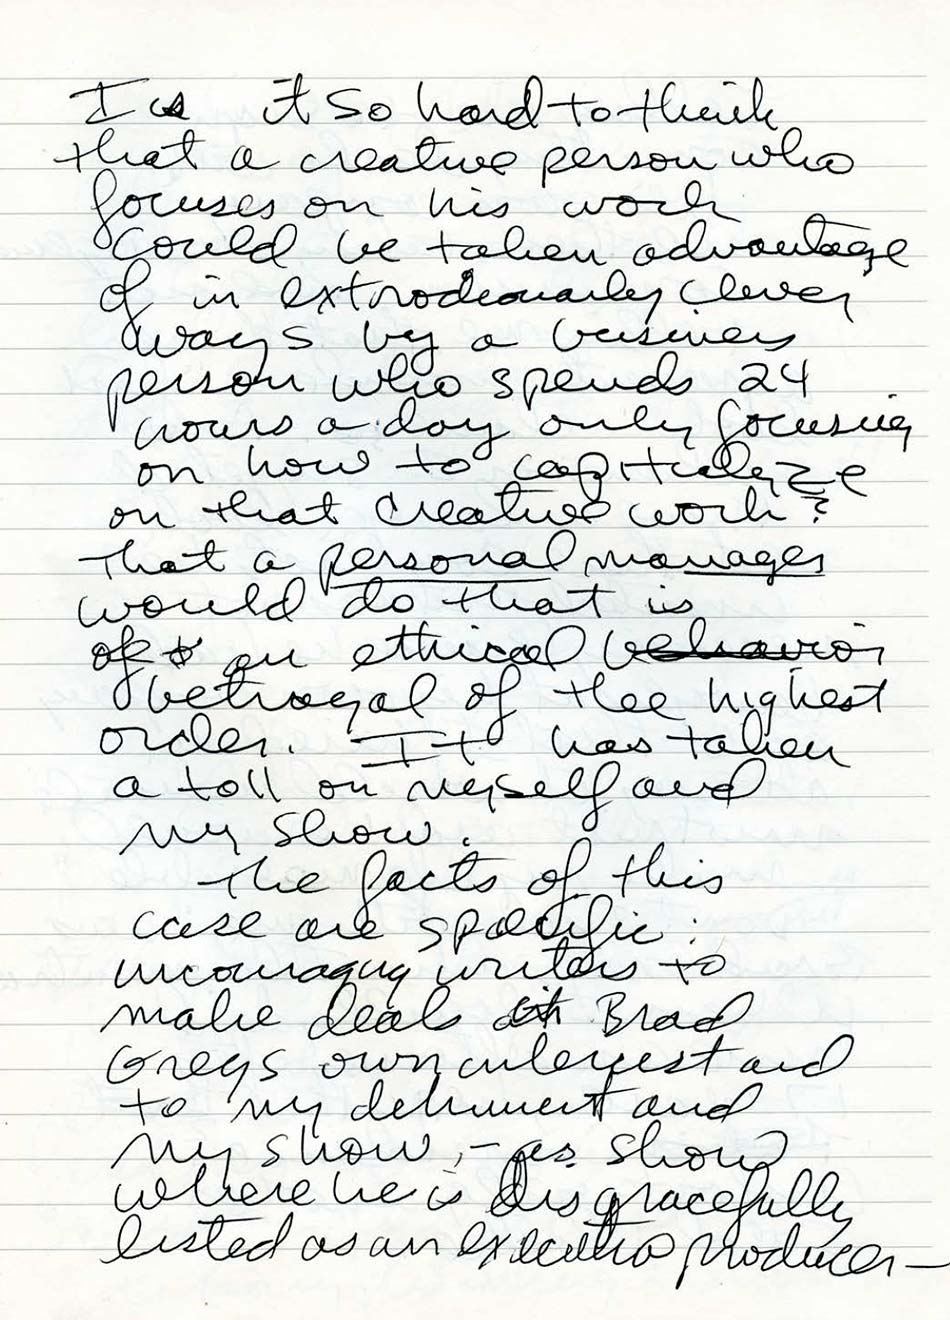 Is it so hard to think
that a creative person who
focuses on his work
could be taken advantage
of in extrodionarily clever
ways by a business
person who spends 24
hours a day only focusing
on how to capitulyze
on that creative work?
that a personal manager
would do that is
of an ethical behavior
betrayal of the highest
order. It has taken
a toll on myself and
my show.
The facts of this
case are specific:
incouraging writers to
make deals at Brad
Greys own interest and
to my detriment and
my show, – a show
where he is disgracefully
listed as an executive producer –